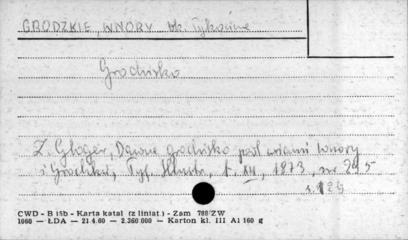 GRODZKIE, WNORY ok. Tykocina
Grodzisko
Z. Gloger, Dawne grodzisko pod wsiami Wnory
i Grodzkie, Tyg. Illustr., t. XII, 1873, nr 295
s. 124
CWD - B iSb - Karta katal (z liniat.) - Zam 788/ZW
1060 — ŁDA — 21.4.60 — 2.360.000 — Karton kl. III A1 160 g